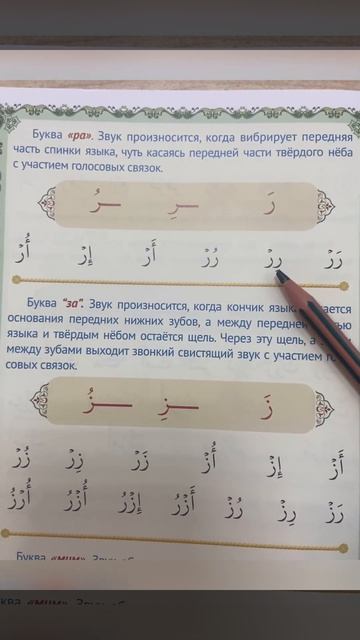 Буква «ра». Звук произносится, когда вибрирует передняя
часть спинки языка, чуть касаясь передней части твёрдого нёба
с участием голосовых связок.
رَ ـرِ ـرُ
رَرْ رِرْ رُرْ أَرْ إِرْ أُرْ
Буква "за". Звук произносится, когда кончик
основания передних нижних зубов, а между
языка и твёрдым нёбом остаётся щель. Через эту щель, а
между зубами выходит звонкий свистящий звук с участием
совых связок.
زَ ـزِ ـزُ
أَزْ إِزْ أُزْ زَرْ زِرْ زُرْ
رَزْ رِزْ رُزْ أَزْرُ إِزْرُ أُزْرُ أُرْزُ
Буква «мим».